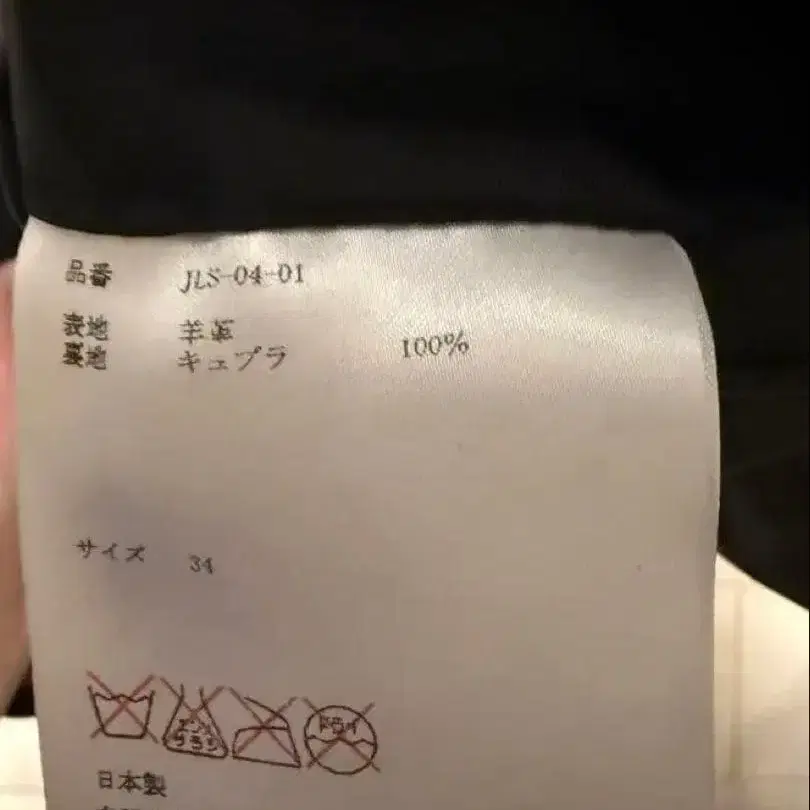 品番 JLS-04-01
表地 羊革
裏地 キュプラ 100%
サイズ 34
エンソ
サラシ
ドライ
日本製